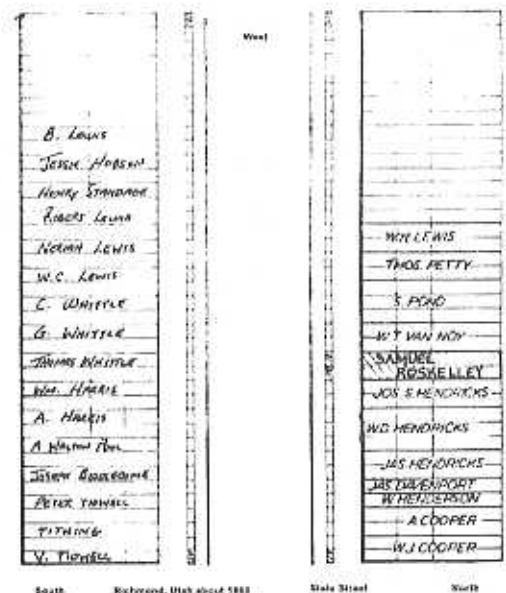 West
B. LEWIS
JESSIE HOBSON
HENRY STANDAGE
ROBERT LEWIS
NERIAH LEWIS
W.C. LEWIS
C. WHITTLE
G. WHITTLE
THOMAS WHITTLE
WM. HARRIS
A. HARRIS
A WALTON
JOSEPH
PETER TIDWELL
TITHING
V. TIDWELL
W.H. LEWIS
THOS. PETTY
S. POND
W T VAN NOY
SAMUEL
ROSKELLEY
JOS S. HENDRICKS
W.D. HENDRICKS
JAS HENDRICKS
JAS DAVENPORT
W HENDERSON
A COOPER
W.J COOPER
South
Richmond, Utah about
State Street
North